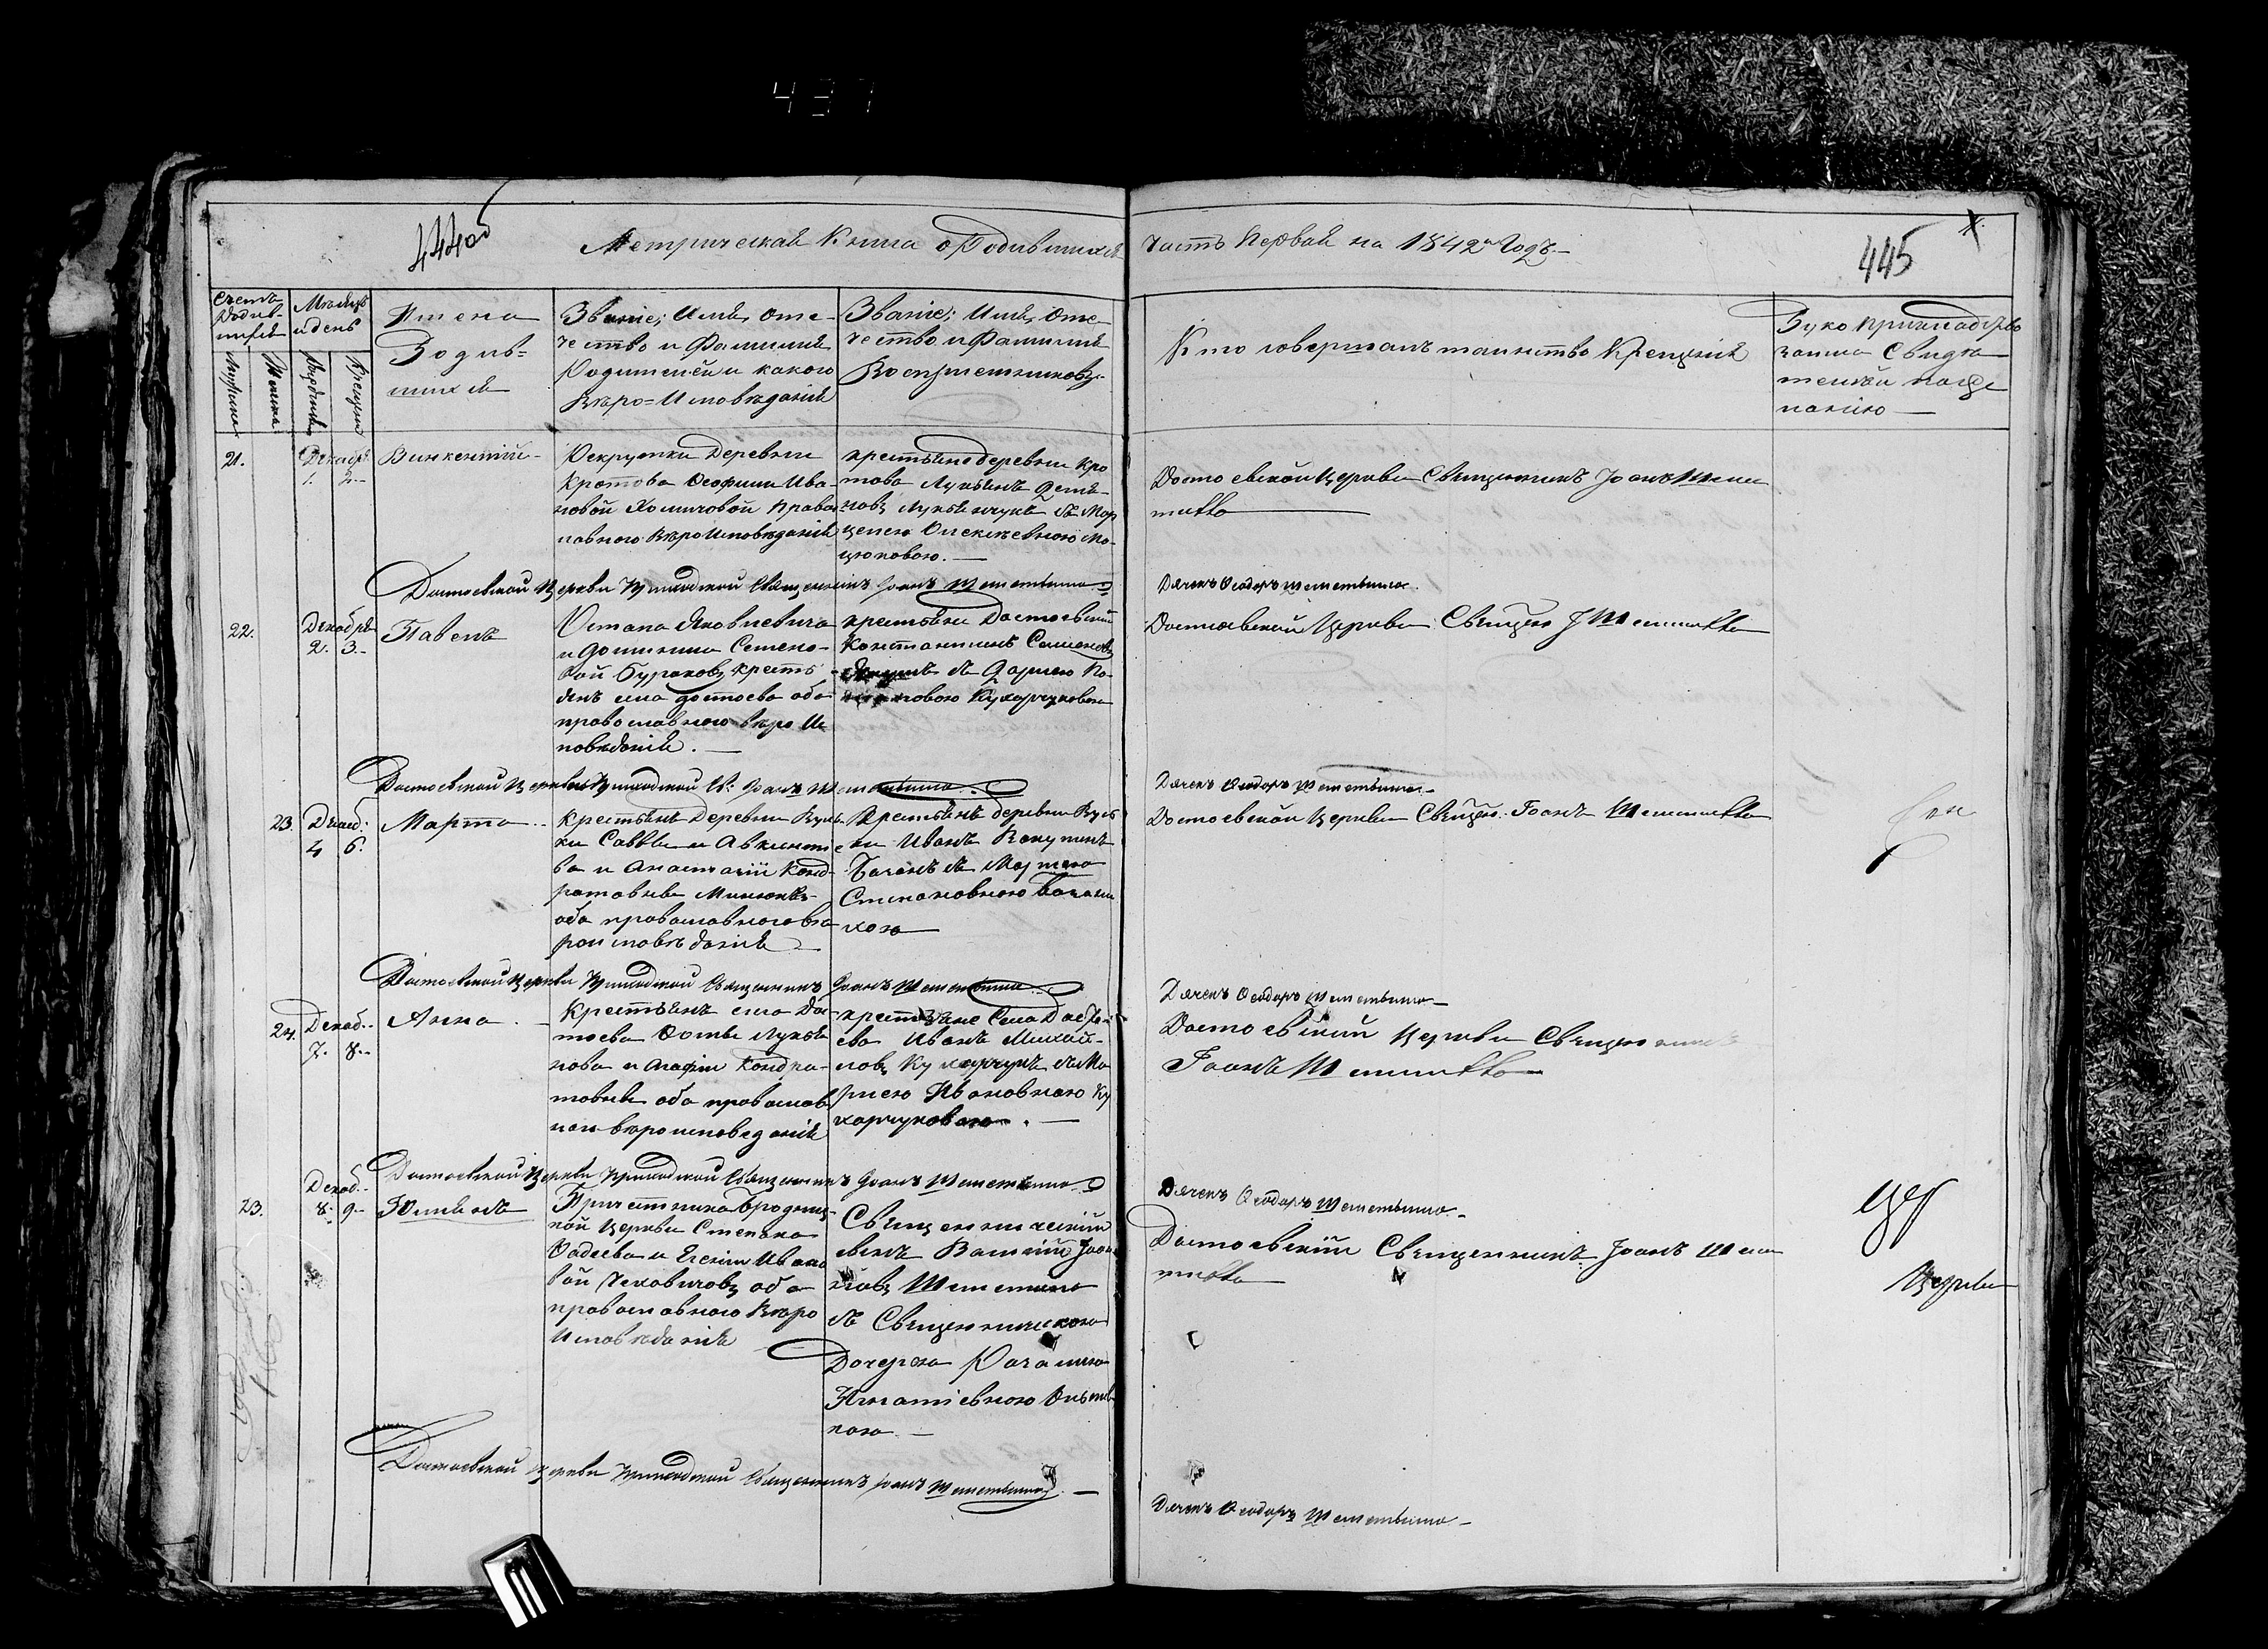 437
444об
Метрическая Книга о Родившихся
часть Первая на 1842й Годъ.
445
Счетъ
Родив-
шихся
Мѣсяцъ
и день
Имена
Родив-
шихся
Званіе, Имя, Оте-
чество и Фамилія
Родителей и какого
Вѣро-Исповѣданія
Званіе; Имя, Оте-
чество и Фамилія
Воспріемниковъ
Кто совершалъ таинство Крещенія
Руко прикладство
записа Свидѣ
телей по же
ланію
Мужска
Женска
Рожденія
Крещенія
21.
Декабр.
1. 2.
Винкентій
Рекрутки Деревни
Кротова Феофили Ива-
новой Хомичовой Право
славного ВѣроИсповѣданія
крестьяне деревни Кро
това Лукьянъ Деми-
новъ Лукьянчукъ съ Мар
целею Олексѣевною Ма-
цюковою.
Достоевской Церкви Священникъ Іоаннъ Шеме
тилло
Достоевской Церкви Приходской Священникъ Іоаннъ Шеметилло
Дячекъ Ѳеодоръ Шеметилло
22.
Декабря
2. 3.
Павелъ
Остапа Яковлевича
и Домникии Семено-
вой Бураковъ Кресть-
янъ села Достоева оба
православного вѣро Ис
повѣданія.
крестьяни Достоевскій
Константинъ Семеновъ
съ Дарією
новою Кухарчуковою
Достоевской Церкви Священ І Шеметилло
Достоевской Церкви Приходской С: Іоаннъ Шеметилло
Дячекъ Ѳеодоръ Шеметилло
23.
Декаб:
4 6.
Марта
Крестьянъ Деревни Вуль
ки Саввы Авксенті
ва и Анастасіи Конд-
ратовны Минюкъ
оба православного вѣ
роисповѣданія
Крестьянъ деревни Вуль
ки Иванъ
съ Мартою
Степановною
хою
Достоевской Церкви Священ. Іоаннъ Шеметилло
Достоевской Церкви Приходской Священникъ Іоаннъ Шеметилло
Дячекъ Ѳеодоръ Шеметилло
24.
Декаб.
7. 8.
Анна
Крестьянъ села До-
стоева Фомы Лукья
нова и Агафіи Кондра-
товны оба православ
наго вѣроисповеданія
крестьяне Села Досто-
ева Иванъ Михай-
ловъ Кухарчукъ съ Ма
рією Ивановною Ку
харчуковою.
Достоевской Церкви Священникъ
Іоаннъ Шеметилло
Достоевской Церкви Приходской Священникъ Іоаннъ Шеметилло
Дячекъ Ѳеодоръ Шеметилло
23.
Декаб.
8. 9.
Юліянъ
Причетника Бродниц-
кой Церкви Степана
Фадеева и Евгеніи Ивано
вой Чеховичовъ оба
православного Вѣро
Исповѣданія
Священническій
сынъ Василій Іоан
новъ Шеметилло
съ Священническою
Дочерью
Игнатіевною
кою
Достоевскій Священникъ Іоаннъ Шеме
тилло
Церкви
Достоевской Церкви Приходской Священникъ Іоаннъ Шеметилло.
Дячекъ Ѳеодоръ Шеметилло